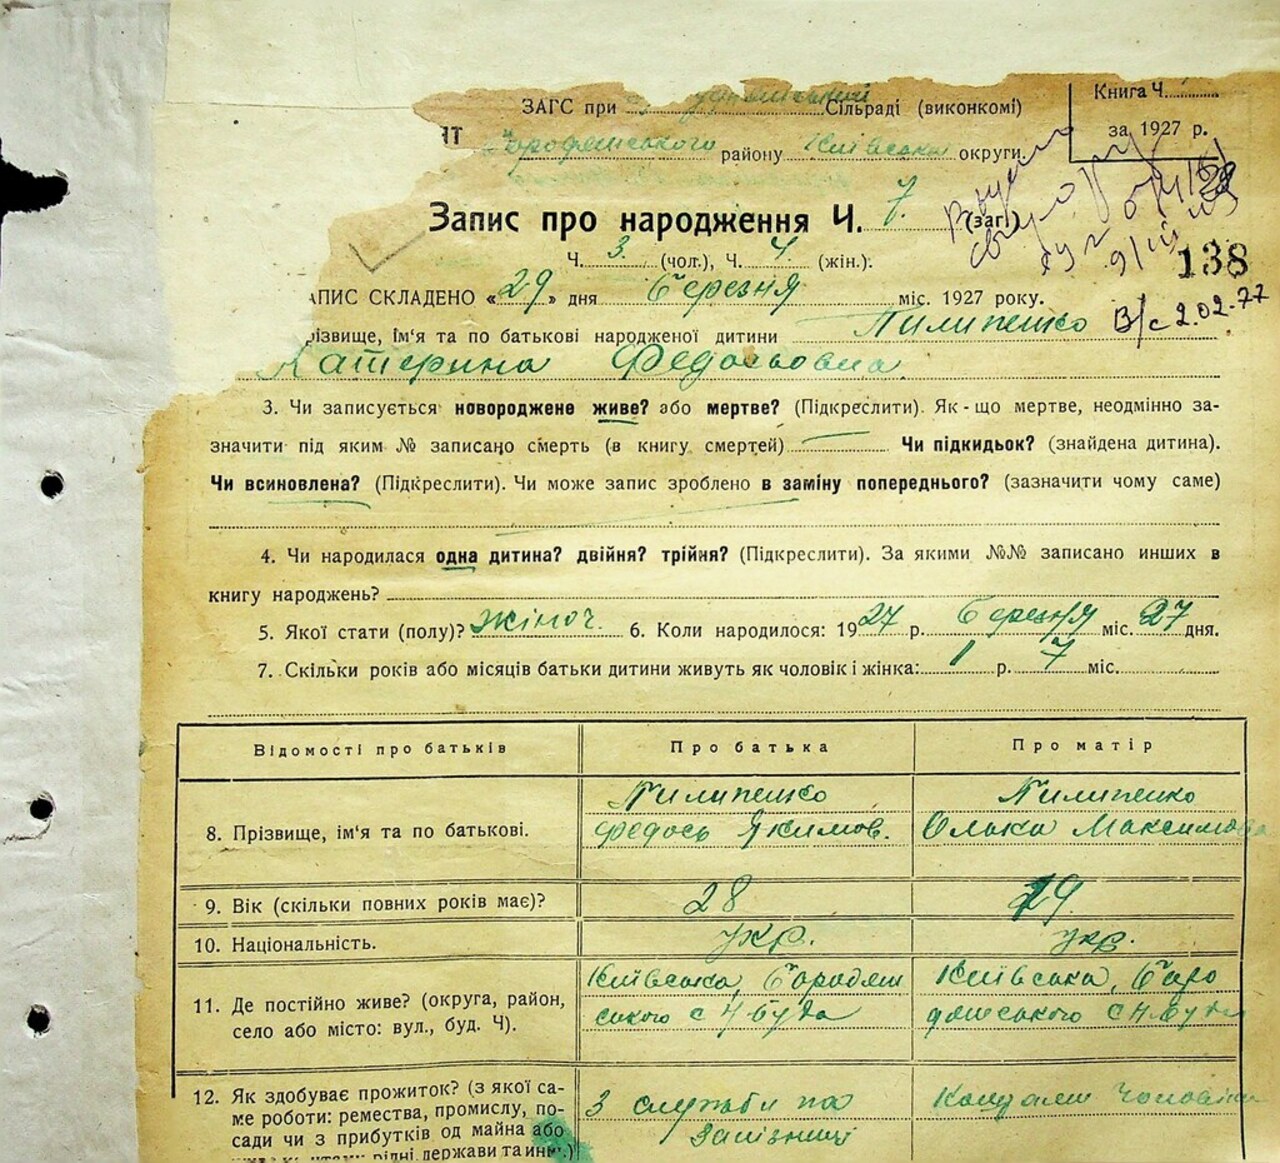 ЗАГС при Сільраді (виконкомі)
району Київська округи
Книга Ч.
за 1927 р.
Запис про народження Ч. 7. (заг.)
Ч. 3. (чол.), Ч. 4. (жін.).
138
АПИС СКЛАДЕНО «29» дня березня міс. 1927 року.
різвище, ім'я та по батькові народженої дитини Пилипенко
В/с 2.02.77
Катерина Федосьовна
3. Чи записується новороджене живе? або мертве? (Підкреслити). Як-що мертве, неодмінно за-
значити під яким № записано смерть (в книгу смертей) Чи підкидьок? (знайдена дитина).
Чи всиновлена? (Підкреслити). Чи може запис зроблено в заміну попереднього? (зазначити чому саме)
4. Чи народилася одна дитина? двійня? трійня? (Підкреслити). За якими №№ записано инших в
книгу народжень?
5. Якої стати (полу)? жіноч. 6. Коли народилося: 1927 р. березня міс. 27 дня.
7. Скільки років або місяців батьки дитини живуть як чоловік і жінка: 1 р. 7 міс.
Відомості про батьків Про батька Про матір
8. Прізвище, ім'я та по батькові.
Пилипенко Федось Якимов.
Пилипенко Олька Максимова
9. Вік (скільки повних років має)? 28 29
10. Національність. укр. укр.
11. Де постійно живе? (округа, район,
село або місто: вул., буд. Ч).
Київська, Бородян
ського с
Київська, Боро
дянського с
12. Як здобуває прожиток? (з якої са-
ме роботи: ремества, промислу, по-
сади чи з прибутків од майна або
рідні, держави та инш.)
З служби на
Залізниці
Коштами чоловіка